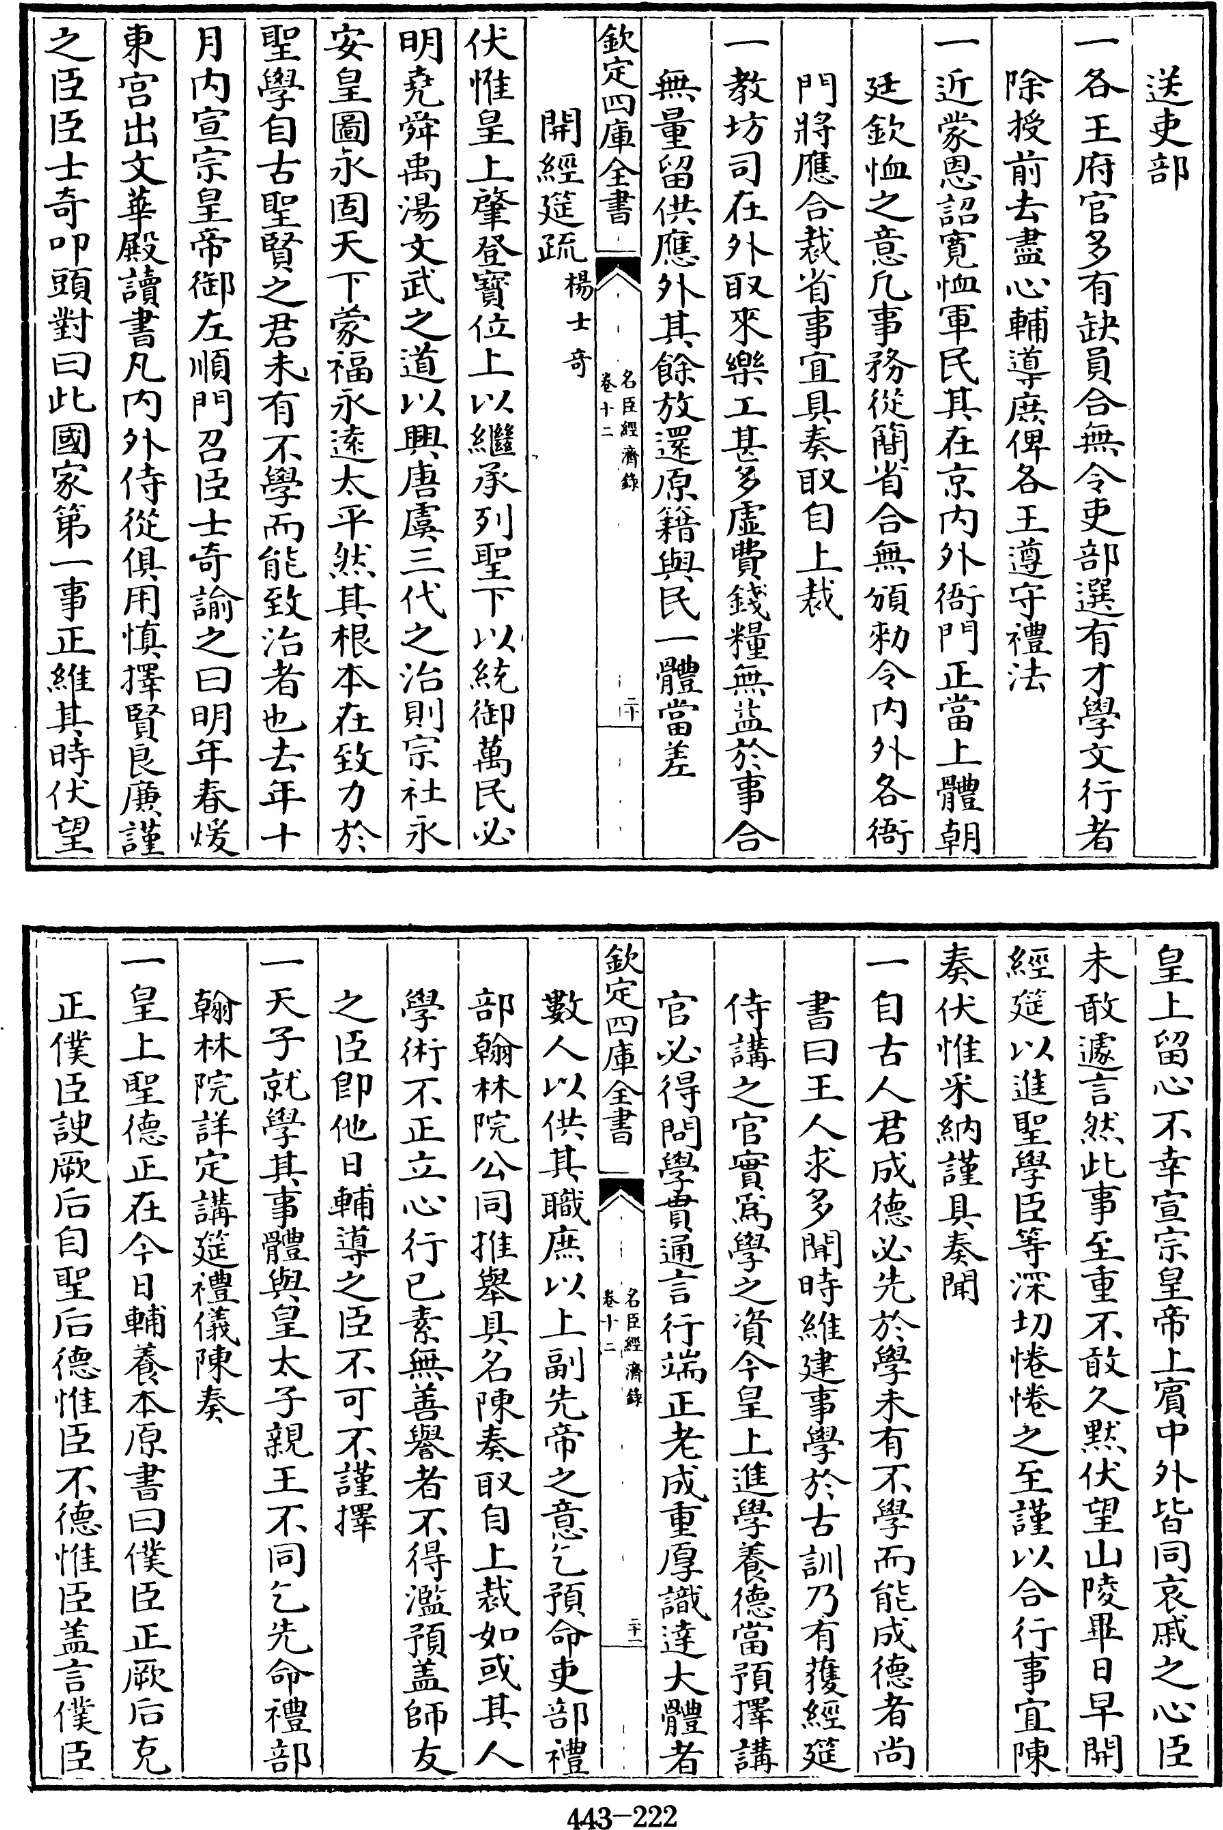 送吏部
一各王府官多有缺員合無令吏部選有才學文行者
除授前去盡心輔導庶俾各王遵守禮法
一近蒙恩詔寛恤軍民其在京内外衙門正當上體朝
廷欽恤之意凡事務從簡省合無頒勑令内外各衙
門將應合裁省事宜具奏取自上裁
一教坊司在外取來樂工甚多虛費錢糧無益於事合
無量留供應外其餘放還原籍與民一體當差
欽定四庫全書
名臣經濟録
卷十二
二十
開經筵疏 楊士奇
伏惟皇上肇登寳位上以繼承列聖下以統御萬民必
明堯舜禹湯文武之道以興唐虞三代之治則宗社永
安皇圖永固天下蒙福永遠太平然其根本在致力於
聖學自古聖賢之君未有不學而能致治者也去年十
月内宣宗皇帝御左順門召臣士奇諭之曰明年春煖
東宮出文華殿讀書凡内外侍從俱用慎擇賢良廉謹
之臣臣士奇叩頭對曰此國家第一事正維其時伏望
皇上留心不幸宣宗皇帝上賔中外皆同哀戚之心臣
未敢遽言然此事至重不敢久默伏望山陵畢日早開
經筵以進聖學臣等深切惓惓之至謹以合行事宜陳
奏伏惟采納謹具奏聞
一自古人君成德必先於學未有不學而能成德者尚
書曰王人求多聞時維建事學於古訓乃有獲經筵
侍講之官實爲學之資今皇上進學養德當預擇講
官必得問學貫通言行端正老成重厚識達大體者
欽定四庫全書
名臣經濟録
卷十二
二十一
數人以供其職庶以上副先帝之意乞預命吏部禮
部翰林院公同推舉具名陳奏取自上裁如或其人
學術不正立心行已素無善譽者不得濫預盖師友
之臣卽他日輔導之臣不可不謹擇
一天子就學其事體與皇太子親王不同乞先命禮部
翰林院詳定講筵禮儀陳奏
一皇上聖德正在今日輔養本原書曰僕臣正厥后克
正僕臣諛厥后自聖后德惟臣不德惟臣盖言僕臣
443-222